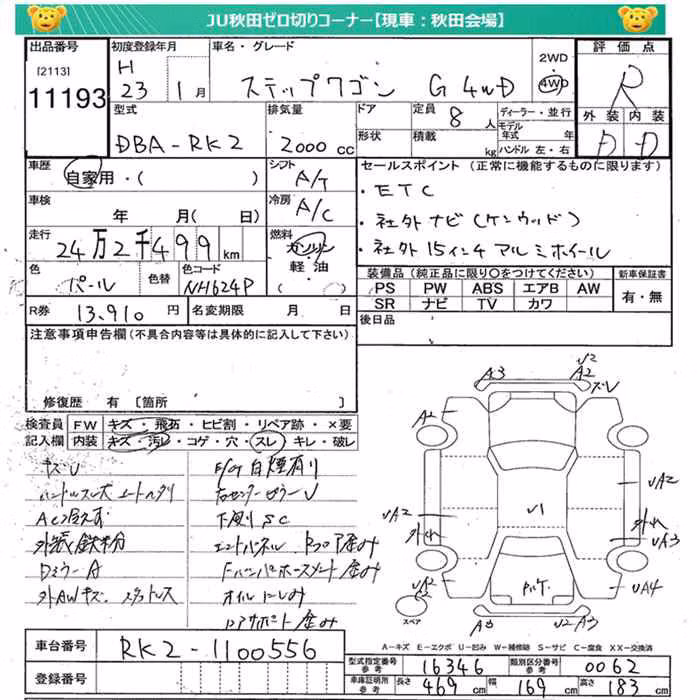 JU秋田ゼロ切りコーナー【現車：秋田会場】
出品番号
[2113]
11193
初度登録年月
H
23 1月
車名・グレード
ステップワゴン G 4WD
2WD
4WD
評価点
R
外装 内装
D D
型式
DBA-RK2
排気量
2000 cc
ドア
形状
定員 8 人
積載 kg
ディーラー・並行
モデル年式 年
ハンドル 左・右
車歴
自家用・( )
シフト
A/T
セールスポイント (正常に機能するものに限ります)
・ETC
・社外ナビ(ケンウッド)
・社外15インチアルミホイール
車検
年 月( 日)
冷房
A/C
走行
24万2千499km
燃料
ガソリン
軽・油
( )
色
パール
色替
色コード
NH624P
装備品 (純正品に限り○をつけてください)
PS PW ABS エアB AW
SR ナビ TV カワ
新車保証書
有・無
R券 13,910 円
名変期限 月 日
後日品
注意事項申告欄(不具合内容等は具体的に記入して下さい)
修復歴 有 [箇所
検査員記入欄
FW キズ・飛石・ヒビ割・リペア跡・×要
内装 キズ・汚レ・コゲ・穴・スレ・キレ・破レ
キズU
E/G白煙有り
ハンドルスレ大
下廻りSC
外装鉄粉
DミラーA
外AWキズ
オイルにじみ
A3
U2
A2
ズレ
A2
UA2
外れ
U1
UA2
外れ
UA3
UA2
UA4
A3
U2 A3
スペア
A-キズ E-エクボ U-凹み W-補修跡 S-サビ C-腐食 XX-交換済
車台番号
RK2-1100556
登録番号
型式指定番号 参考 16346
類別区分番号 参考 0062
車庫証明所 参考 長さ 469cm 幅 169cm 高さ 183cm